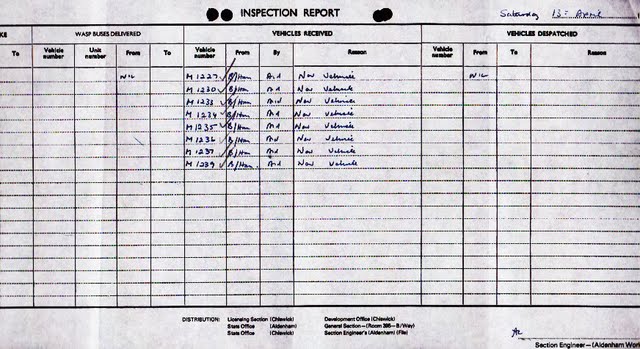 INSPECTION REPORT Saturday 13th April
KE WASP BUSES DELIVERED VEHICLES RECEIVED VEHICLES DESPATCHED
To Vehicle number Unit number From To Vehicle number From By Reason To Vehicle number From Reason
NIL M 1227 B/Ham Ald New Vehicle NIL
M 1230 B/Ham Ald New Vehicle
M 1233 B/Ham Ald New Vehicle
M 1234 B/Ham Ald New Vehicle
M 1235 B/Ham Ald New Vehicle
M 1236 B/Ham Ald New Vehicle
M 1237 B/Ham Ald New Vehicle
M 1239 B/Ham. Ald New Vehicle
DISTRIBUTION: Licensing Section (Chiswick) Development Office (Chiswick)
State Office (Aldenham) General Section—(Room 395—B/Way)
State Office (Chiswick) Section Engineer's (Aldenham) (File)
Section Engineer—(Aldenham Wor